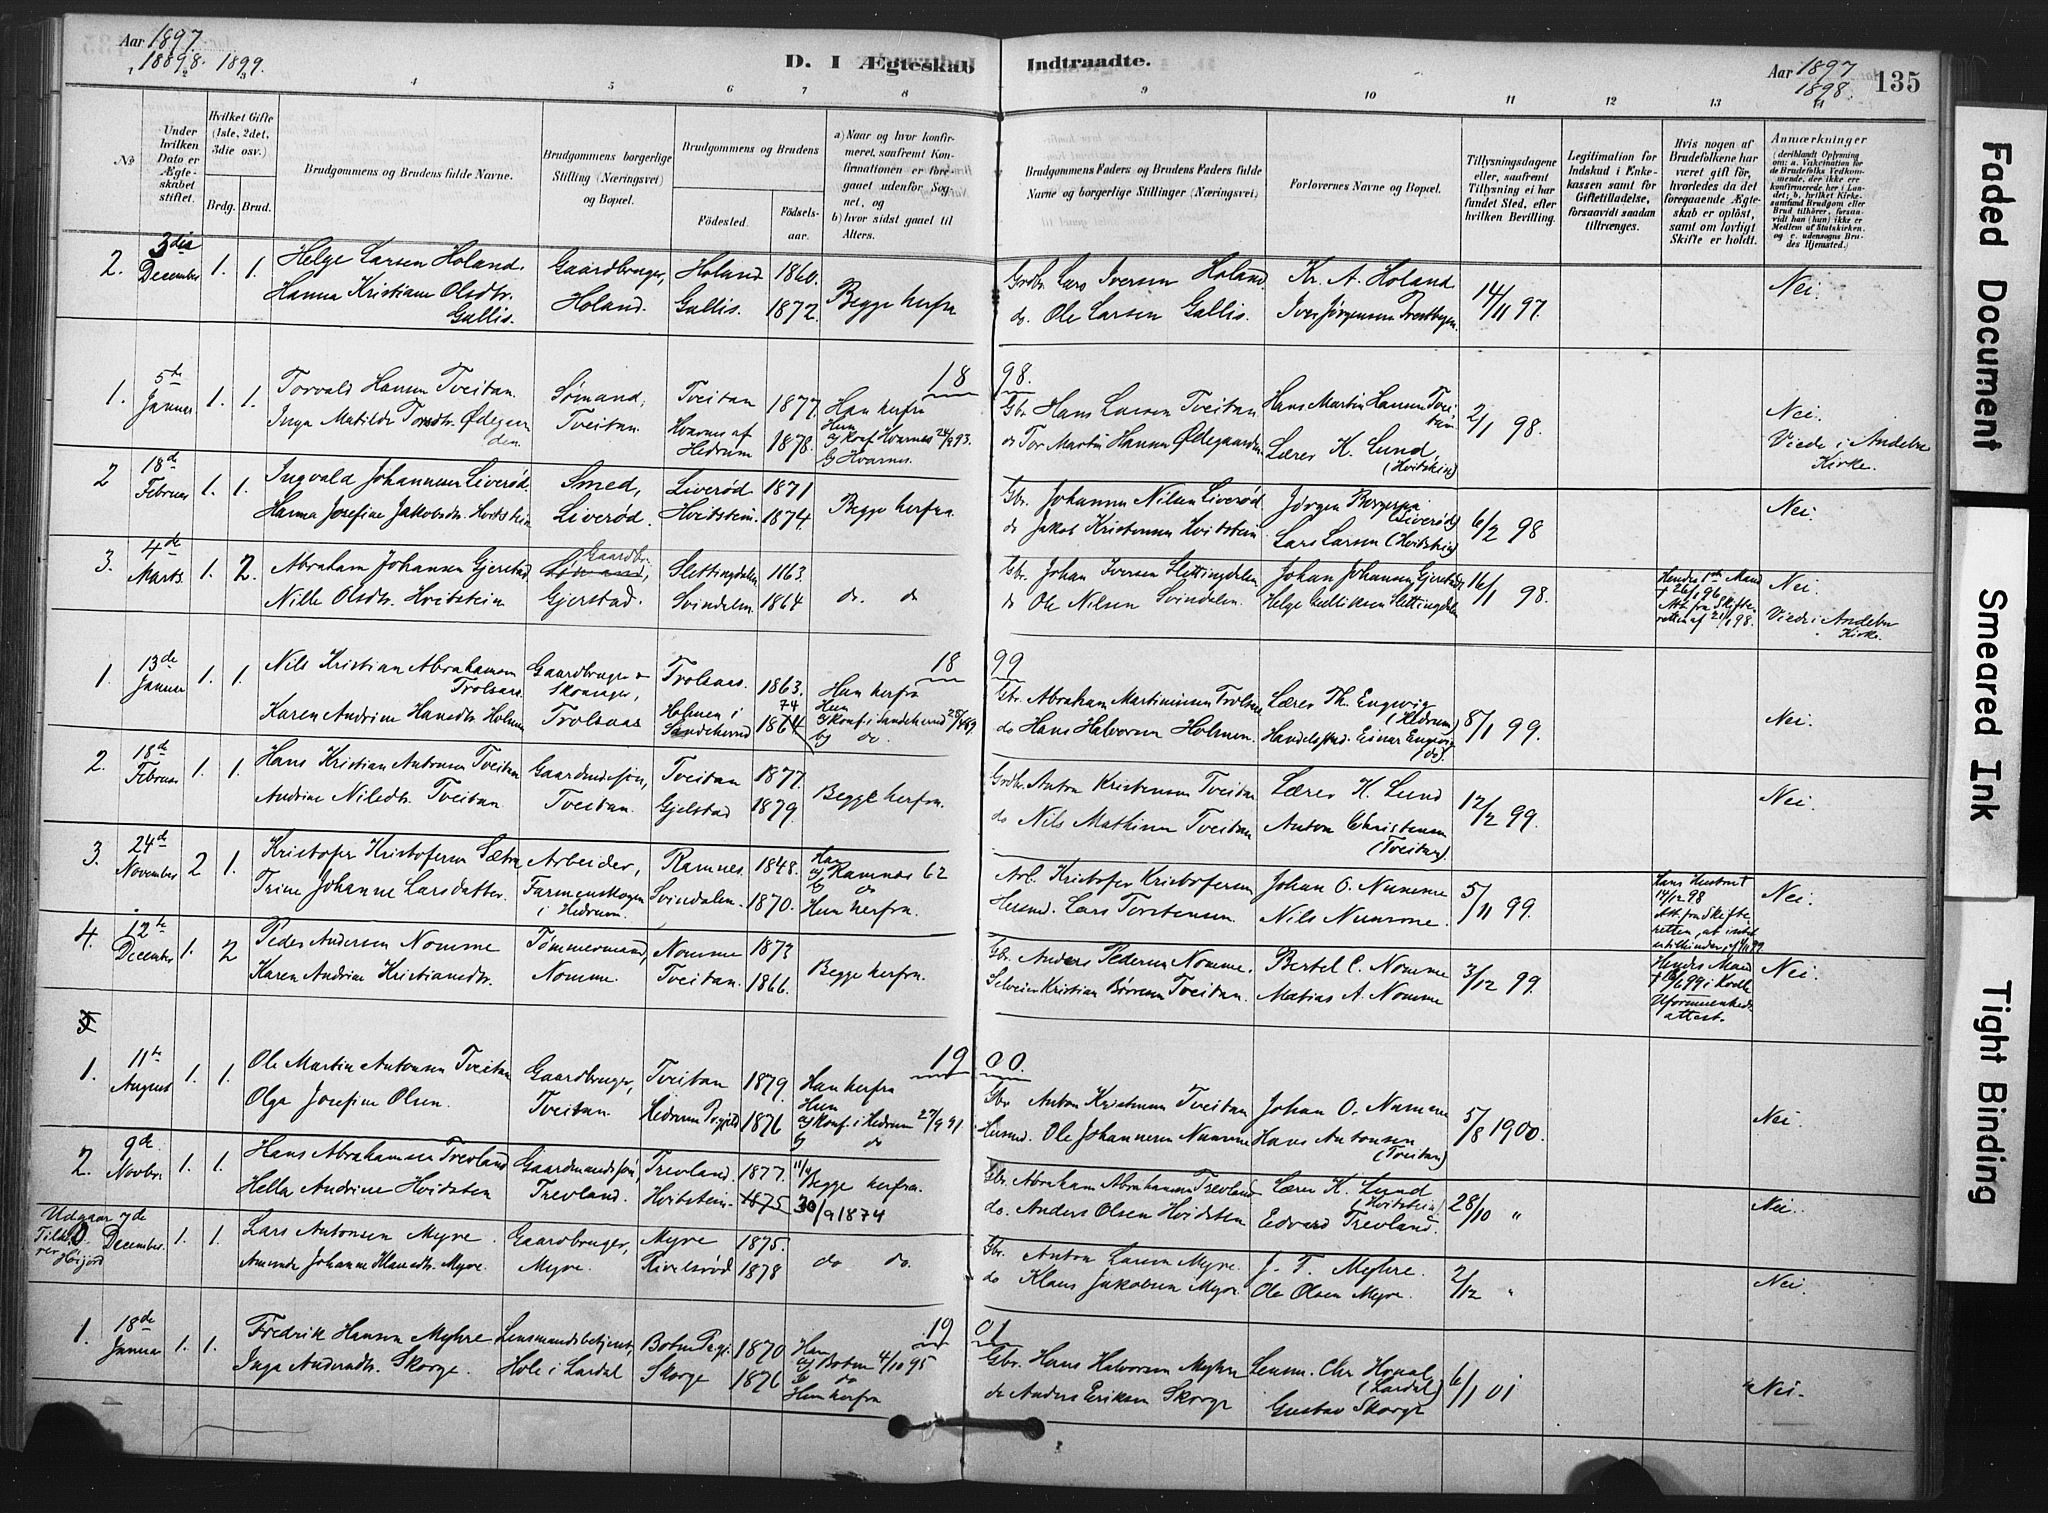 Aar 1897.
1898. 1899.
D. I Ægteskab Indtraadte.
Aar 1897
1898.
135
1 2 3 4 5 6 7 8 9 10 11 12 13 14
No
Under hvilken Dato er Ægteskabet stiftet.
Hvilket Gifte (1ste, 2det, 3die osv.)
Brdg. Brud.
Brudgommens og Brudens fulde Navne.
Brudgommens borgerlige Stilling (Næringsvei) og Bopæl.
Brudgommens og Brudens
Födested. Födselsaar.
a) Naar og hvor konfirmeret, saafremt Konfirmationen er foregaaet udenfor Sognet, og
b) hvor sidst gaaet til Alters.
Brudgommens Faders og Brudens Faders fulde Navne og borgerlige Stillinger (Næringsvei)
Forlovernes Navne og Bopæl.
Tillysningsdagene eller, saafremt Tillysning ei har fundet Sted, efter hvilken Bevilling.
Legitimation for Indskud i Enkekassen samt for Giftetilladelse, forsaavidt saadan tiltrænges.
Hvis nogen af Brudefolkene har været gift för, hvorledes da det foregaaende Ægteskab er oplöst, samt om lovligt Skifte er holdt.
Anmærkninger
(deriblandt Oplysning om: a. Vakcination for de Brudefolks Vedkommende, der ikke ere konfirmerede her i Landet; b. hvilket Kirkesamfund Brudgom eller Brud tilhörer, forsaavidt han (hun) ikke er Medlem af Statskirken, og c. udensogns Brudes Hjemsted.)
2. 3die December 1. 1. Helge Larsen Holand. Gaardbruger, Holand 1860. Grdbr. Lars Iversen Holand. Kr. A. Holand 14/11 97. Nei.
Hanna Kristiane Olsdtr. Gallis. Holand. Gallis. 1872. Begge herfra. do. Ole Larsen Gallis. Iver Jørgensen
1898.
1. 5te Januar 1. 1. Torvald Hansen Tveitan. Sømand, Tveitan 1877. Han herfra Gbr. Hans Larsen Tveitan. Hans Martin Hansen Tveitan 2/1 98. Nei.
Inga Matilde Torsdtr. Ødegaarden. Tveitan. Hvarnes af Hedrum 1878. Hun a) Konf. Hvarnes 24/9 93. b) Hvarnes. do Tor Martin Hansen Ødegaarden Lærer K. Lund, (Hvitstein) Viede i Andebu Kirke.
2 18de Februar 1. 1. Ingvald Johannesen Liverød. Smed, Liverød 1871 Begge herfra. Gbr. Johannes Nilsen Liverød. Jørgen (Liverød) 6/2 98 Nei.
Hanna Josefine Jakobsdtr. Hvitstein Liverød. Hvitstein. 1874. do Jakob Kristensen Hvitstein. Lars Larsen (Hvitstein)
3. 4de Marts 1. 2. Abraham Johansen Gjerstad Gaardbr. Slettingdalen 1863. Gbr. Johan Iversen Slettingdalen Johan Johansen Gjerstad 16/1 98. Hendes 1ste Mand † 26/1 96. Att. fra Skifteretten af 21/1 98. Nei.
Nille Olsdtr. Hvitstein Gjerstad. Svindalen. 1864 do. do do Ole Nilsen Svindalen. Helge Gulliksen Slettingdalen Viede i Andebu Kirke.
1899
1. 13de Januar 1. 1. Nils Kristian Abrahamsen Trolsaas. Gaardbruger & Skomager, Trolsaas. 1863. Han herfra Gbr. Abraham Martiniusen Trolsaas Lærer Th. Engwig (Hedrum) 8/1 99. Nei.
Karen Andrine Hansdtr. Holmen Trolsaas Holmen i Sandeherred 74 1874 Hun a) Konf. i Sandeherred 28/4 89. b) do. do Hans Halvorsen Holmen. Handelsbd. Einar Engwig (do)
2. 18de Februar 1. 1. Hans Kristian Antonsen Tveitan Gaardmandssøn, Tveitan 1877. Begge herfra. Grdbr. Anton Kristensen Tveitan Lærer K. Lund 12/2 99. Nei.
Andrine Nilsdtr. Tveitan. Tveitan. Gjelstad 1879 do Nils Mathisen Tveitan Anton Christensen (Tveitan)
3. 24de November 2 1. Kristofer Kristofersen Sætre Arbeider, Ramnes. 1848. Han a) Ramnes 62 b) do Arb. Kristofer Kristofersen Johan O. Numme 5/11 99. Hans Hustru † 14/12 98 Att. fra Skifteretten, Nei.
Trine Johanne Larsdatter. Farmenskogen i Hedrum. Svindalen. 1870. Hun herfra. Husmd. Lars Torstensen. Nils Numme.
4. 12te December 1. 2 Peder Andersen Nomme Tømmermand, Nomme 1873 Begge herfra. Gbr. Anders Pedersen Nomme. Bertel C. Nomme 3/12 99. Hendes Mand Nei
Karen Andrine Kristiansdtr. Nomme. Tveitan. 1866. Selveier Kristian Tveitan. Matias A. Nomme attest.
5
1900.
1. 11te August 1. 1. Ole Martin Antonsen Tveitan Gaardbruger, Tveitan 1879. Han herfra Gbr. Anton Kristensen Tveitan Johan O. Numme 5/8 1900. Nei
Olga Josefine Olsen. Tveitan. Hedrum 1876 Hun a) Konf. i Hedrum 27/9 91. b) do Husmd. Ole Johannesen Numme Hans Antonsen (Tveitan)
2. 9de Novbr. 1. 1. Hans Abrahamsen Trevland Gaardmandssøn, Trevland. 1877. Begge herfra. Gbr. Abraham Abrahamsen Trevland Lærer K. Lund (Hvitstein) 28/10 " Nei.
Hella Andrine Hvidsten Trevland. Hvitstein. 1875 30/9 1874 do. Anders Olsen Hvidsten Edvard Trevland.
Udgaar Høijord 7de December. 1. 1. Lars Antonsen Myre. Gaardbruger, Myre 1875. do do. Gbr. Anton Larsen Myre. J. T. Myhre. 2/12 " Nei.
Amanda Johanne Klausdtr. Myre. Myre. 1878 do Klaus Jakobsen Myre Ole Olsen Myre.
1901
1. 18de Januar 1. 1. Fredrik Hansen Myhre Lensmandsbetjent, 1870 Han a) Botne 4/10 95 b) do Gbr. Hans Halvorsen Myhre Lensm. Chr. Hvaal (Lardal) 6/1 01 Nei.
Inga Andersdtr. Skorge. Hole i Lardal Skorge 1876 Hun herfra do Anders Eriksen Skorge Gustav Skorge
Faded Document
Smeared Ink
Tight Binding